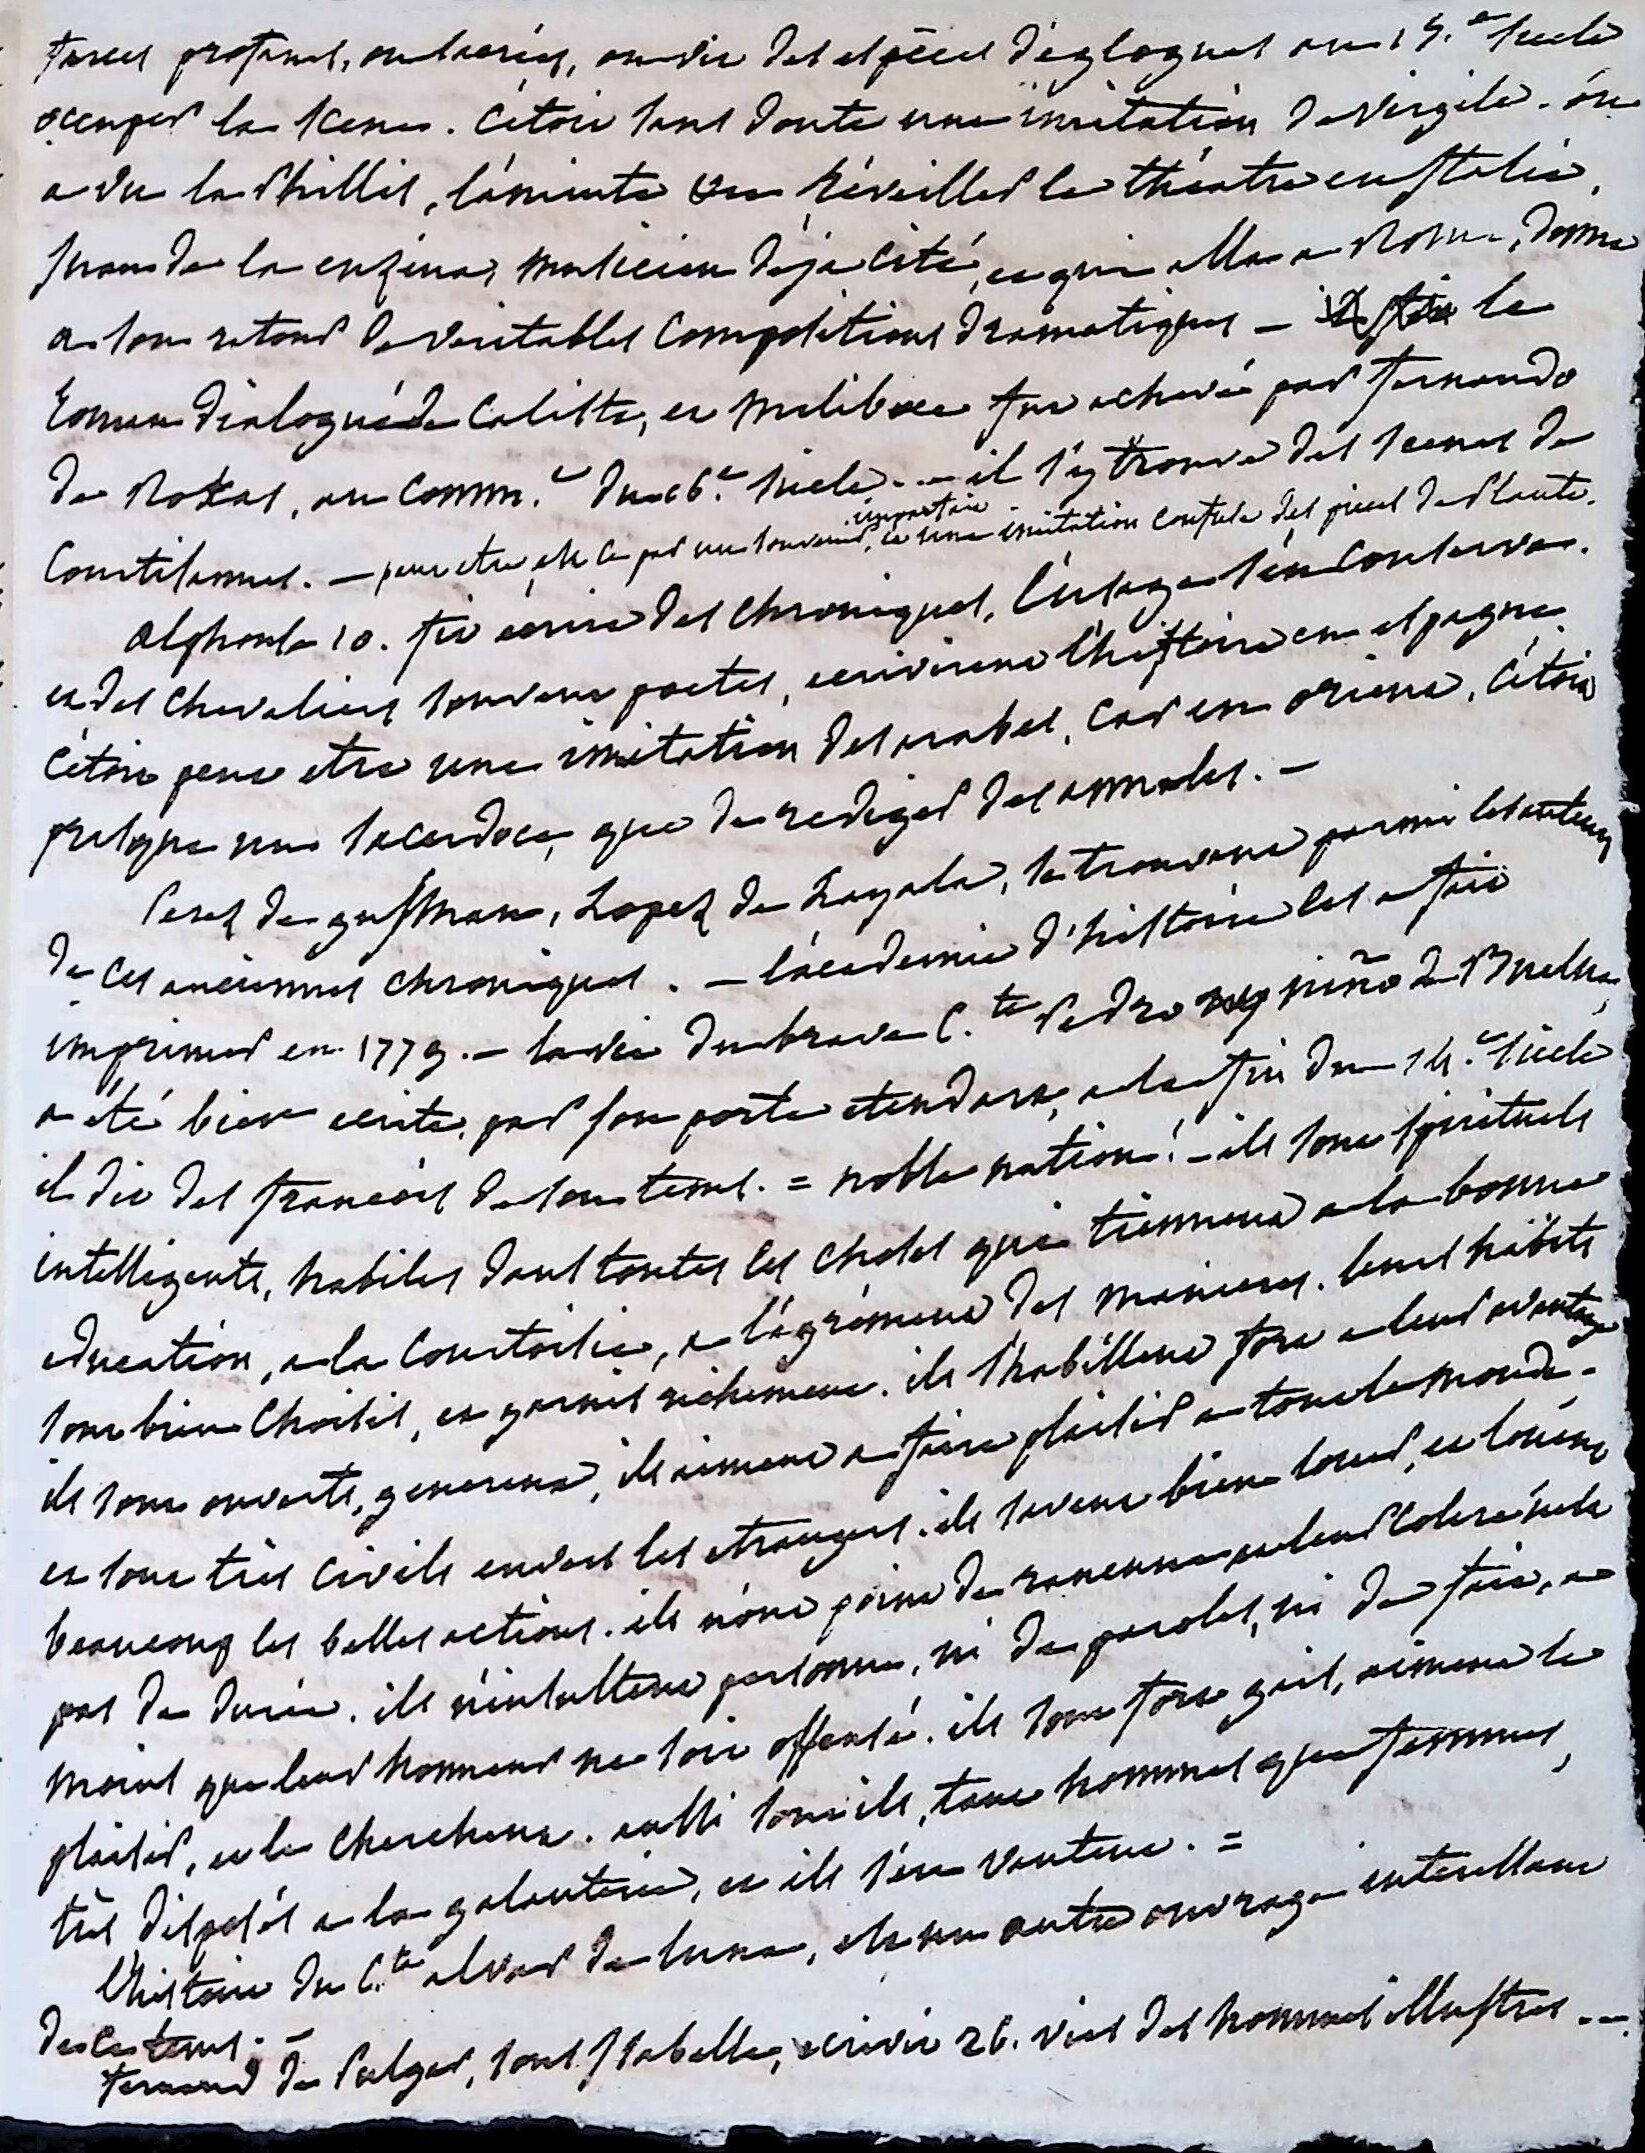 farces profanes, ou sacrées, on vit des especes d'eglogues au 15.e siecle
occuper la scene. c'étoit sans doute une imitation de virgile. on
a vu la Phillis, l'aminte réveiller le théatre en Italie,
Juan de la enzina, musicien déja cité, et qui alla a Rome, donna
a son retour de veritables compositions dramatiques — le
roman dialogué de Calixte, et Meliboea fut achevé par fernando
de Roxas, au comm.t du 16.e siecle. — il s'y trouve des scenes de
courtisannes. — peut etre est ce par un souvenir imparfait, et une imitation confuse des pieces de Plaute.
alphonse 10. fit écrire des chroniques. l'usage s'en conserva.
et des chevaliers souvent poetes, ecrivirent l'histoire en espagne.
c'étoit peut etre une imitation des arabes, car en orient, c'étoit
presque un sacerdoce, que de rediger des annales. —
Perez de gusman, Lopez de Layala, se trouvent parmi les auteurs
de ces anciennes chroniques. — l'académie d'histoire les a fait
imprimer en 1779. — la vie du brave C.te Pedro niño de Buelna,
a été bien ecrite, par son porte etendart, a la fin du 14.e siecle
il dit des françois de son tems. = noble nation! — ils sont spirituels
intelligents, habiles dans toutes les choses qui tiennent a la bonne
education, a la courtoisie, a l'agrément des manieres. leurs habits
sont bien choisis, et garnis richement. ils s'habillent fort a leur avantage
ils sont ouverts, genereux, ils aiment a faire plaisir a tout le monde.
et sont très civils envers les etrangers. ils savent bien louer, et louent
beaucoup les belles actions. ils n'ont point de rancune et leur colere n'a
pas de durée. ils n'insultent personne, ni de paroles, ni de fait, a
moins que leur honneur ne soit offensé. ils sont fort gais, aiment le
plaisir, et le cherchent. aussi sont ils, tant hommes que femmes,
très disposés a la galanterie, et ils s'en vantent. =
l'histoire du C.te alvar de luna, est un autre ouvrage interessant
de ces tems. —
fernand de Pulgar, sous Isabelle, ecrivit 26. vies des hommes illustres ...